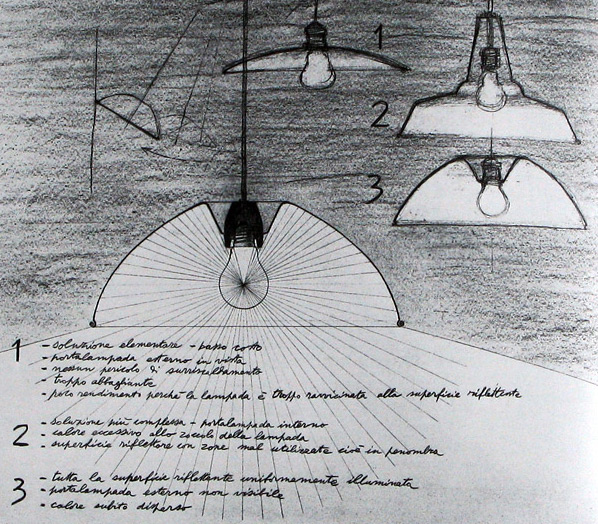 1
2
3
1 - soluzione elementare - basso costo
- portalampada esterno in vista
- nessun pericolo di surriscaldamento
- troppo abbagliante
- poco rendimento perchè la lampada è troppo ravvicinata alla superficie riflettente
2 - soluzione più complessa - portalampada interno
- calore eccessivo allo zoccolo della lampada
- superficie riflettore con zone mal utilizzate cioè in penombra
3 - tutta la superficie riflettente uniformemente illuminata
- portalampada esterno non visibile
- calore subito disperso